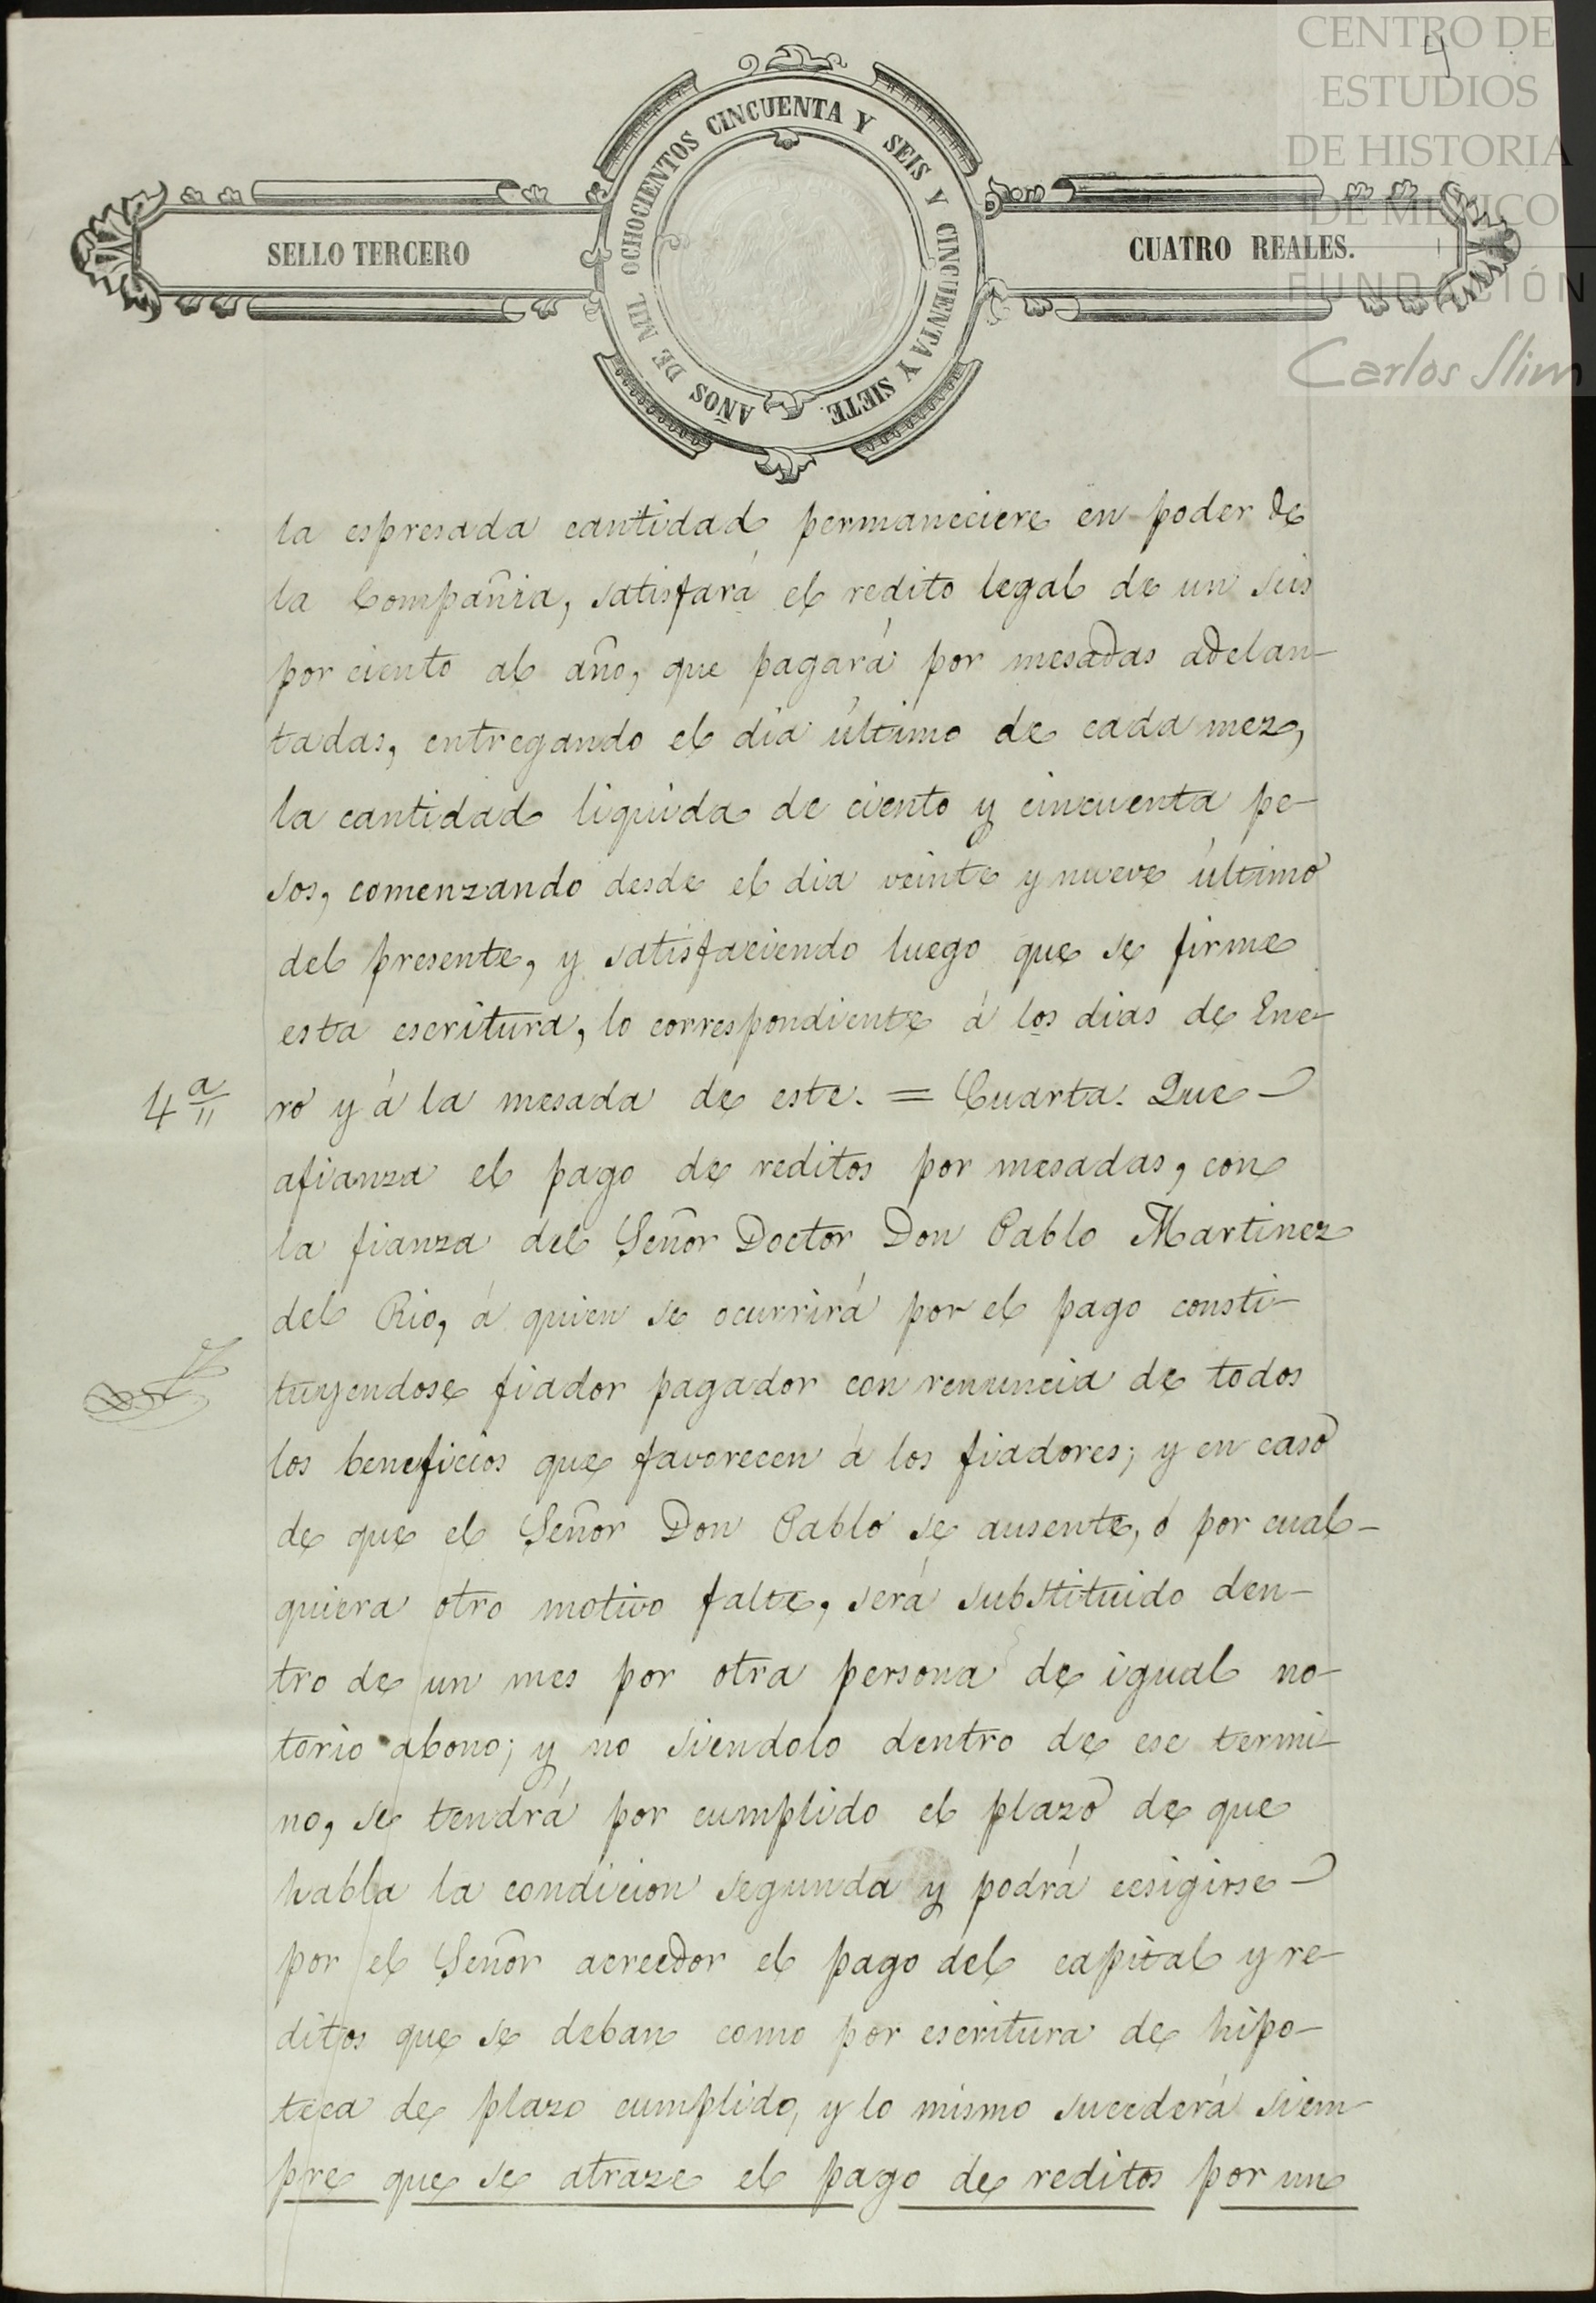 4
CENTRO DE
ESTUDIOS
DE HISTORIA
DE MÉXICO
FUNDACIÓN
Carlos Slim
SELLO TERCERO
AÑOS DE MIL OCHOCIENTOS CINCUENTA Y SEIS Y CINCUENTA Y SIETE.
CUATRO REALES.
la espresada cantidad permaneciere en poder de
la Compañia, satisfará el redito legal de un seis
por ciento al año, que pagará por mesadas adelan-
tadas, entregando el dia último de cada mez,
la cantidad liquida de ciento y cincuenta pe-
sos, comenzando desde el dia veinte y nueve último
del presente, y satisfaciendo luego que se firme
esta escritura, lo correspondiente á los dias de Ene-
4ª ro y á la mesada de este. = Cuarta. Que
afianza el pago de reditos por mesadas, con
la fianza del Señor Doctor Don Pablo Martinez
del Rio, á quien se ocurrirá por el pago consti-
tuyendose fiador pagador con renuncia de todos
los beneficios que favorecen á los fiadores; y en caso
de que el Señor Don Pablo se ausente, ó por cual-
quiera otro motivo falte, será substituido den-
tro de un mes por otra persona de igual no-
torio abono; y no siendolo dentro de ese termi-
no, se tendrá por cumplido el plazo de que
habla la condicion segunda y podrá ecsigirse
por el Señor acreedor el pago del capital y re-
ditos que se deban como por escritura de hipo-
teca de plazo cumplido, y lo mismo sucederá siem-
pre que se atraze el pago de reditos por un